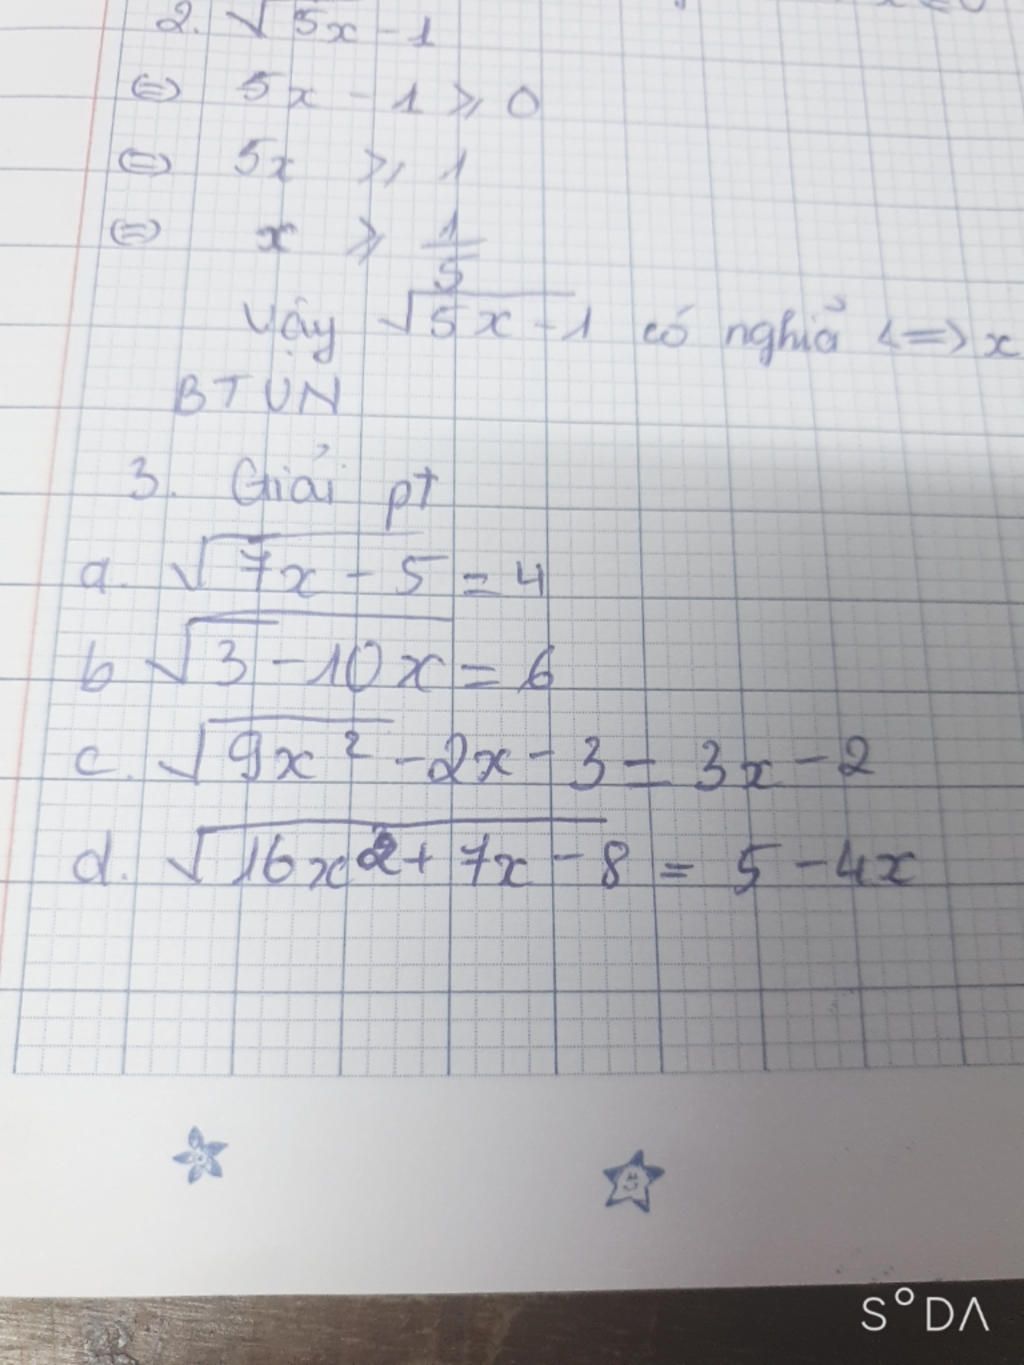 2. √5x - 1
⇔ 5x - 1 ⩾ 0
⇔ 5x ⩾ 1
⇔ x ⩾ 1/5
Vậy √5x - 1 có nghiả <=> x
BTVN
3. Giải pt
a. √7x - 5 = 4
b √3 - 10x = 6
c. √9x² - 2x - 3 = 3x - 2
d. √16x2 + 7x - 8 = 5 - 4x
S°DΛ